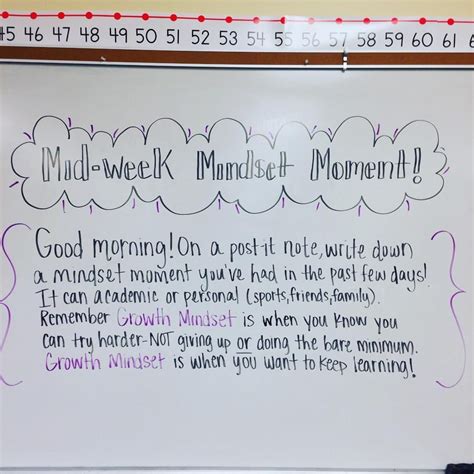 45 46 47 48 49 50 51 52 53 54 55 56 57 58 59 60 61
Mid-week Mindset Moment!
Good morning! On a post-it note, write down
a mindset moment you've had in the past few days!
It can academic or personal (sports, friends, family).
Remember Growth Mindset is when you know you
can try harder-NOT giving up or doing the bare minimum.
Growth Mindset is when you want to keep learning!